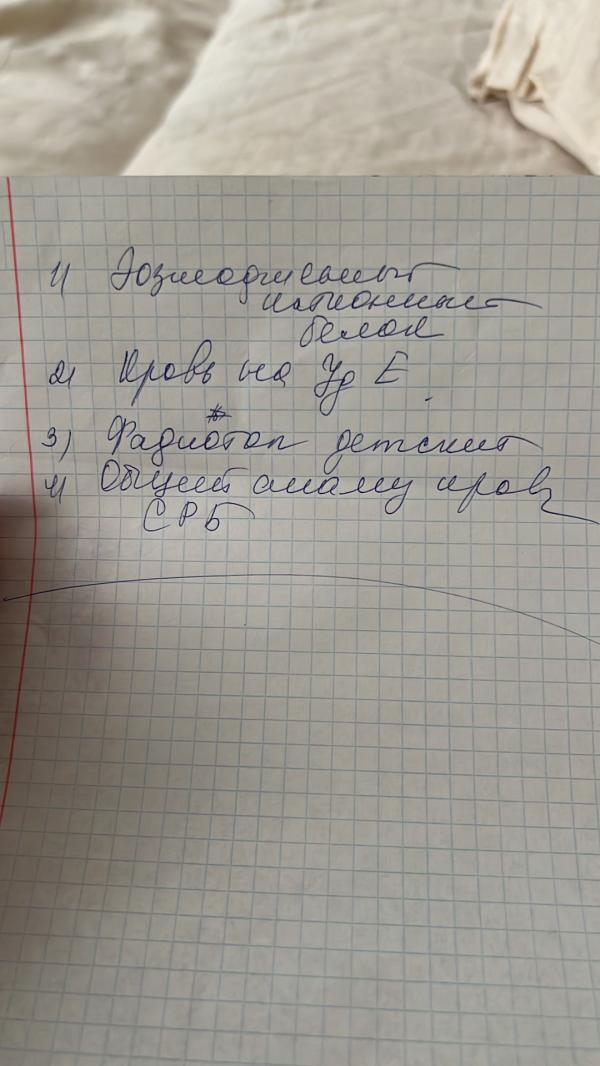 1) Эозинофильный
катионный
белок
2) Кровь на Jg E
3) Фадиотоп детский
4) Общий анализ крови
СРБ